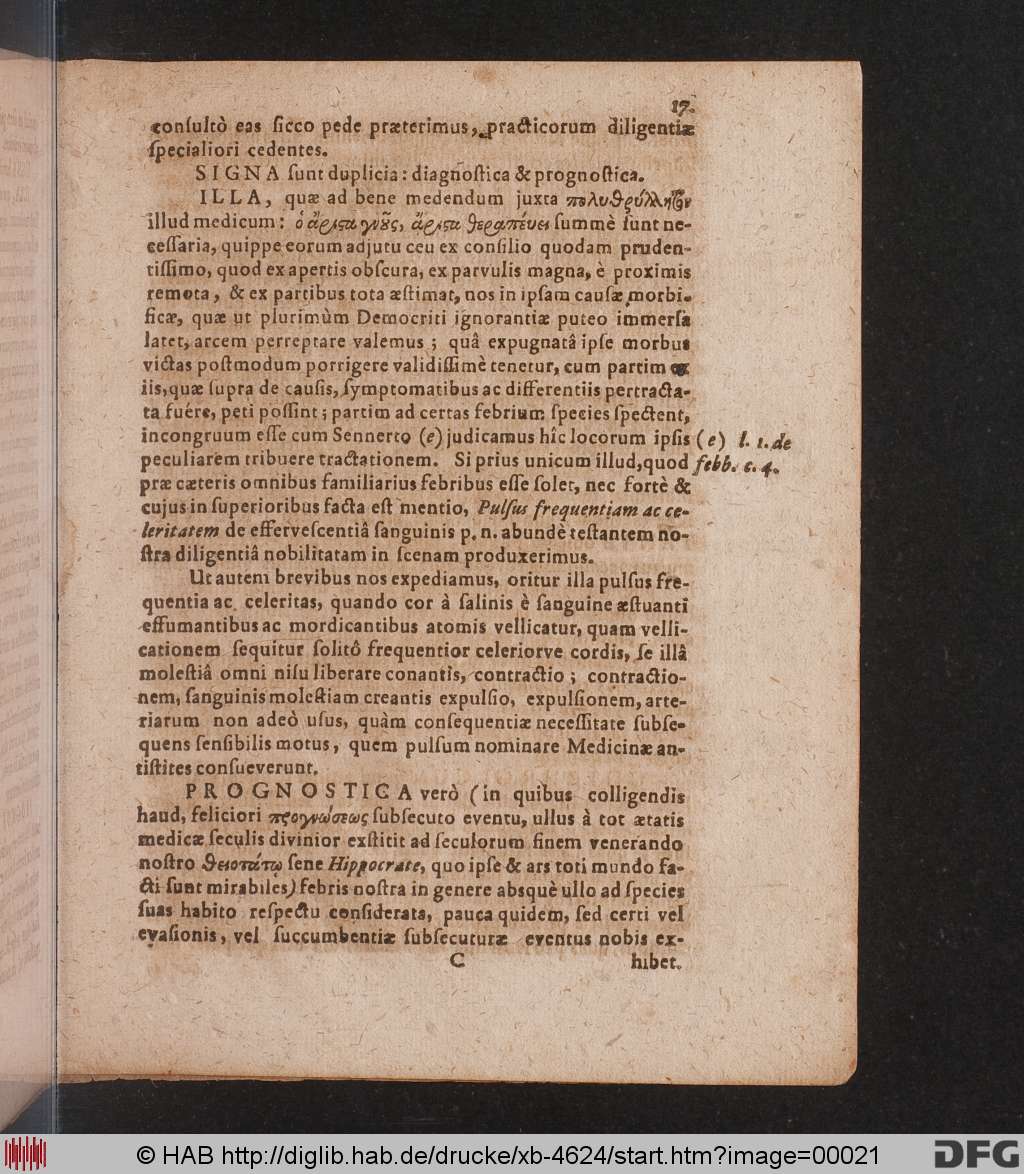 17.
conſultò eas ſicco pede præterimus, practicorum diligentiæ
ſpecialiori cedentes.
SIGNA ſunt duplicia: diagnoſtica & prognoſtica.
ILLA, quæ ad bene medendum juxta πολυθρύλλητον
illud medicum: ὁ ἄριστα γνοῦς, ἄριστα θεραπέυει ſummè ſunt ne-
ceſſaria, quippe eorum adjutu ceu ex conſilio quodam pruden-
tiſſimo, quod ex apertis obſcura, ex parvulis magna, è proximis
remota, & ex partibus tota æſtimat, nos in ipſam cauſæ morbi-
ficæ, quæ ut plurimùm Democriti ignorantiæ puteo immerſa
latet, arcem perreptare valemus; quâ expugnatâ ipſe morbus
victas poſtmodum porrigere validiſſimè tenetur, cum partim ex
iis, quæ ſupra de cauſis, ſymptomatibus ac differentiis pertracta-
ta fuére, peti poſſint; partim ad certas febrium ſpecies ſpectent,
incongruum eſſe cum Sennerto (e) judicamus hîc locorum ipſis
(e) l. 1. de
peculiarem tribuere tractationem. Si prius unicum illud, quod
febb. c. 4.
præ cæteris omnibus familiarius febribus eſſe ſolet, nec fortè &
cujus in ſuperioribus facta eſt mentio, Pulſus frequentiam ac ce-
leritatem de efferveſcentiâ ſanguinis p. n. abundè teſtantem no-
ſtra diligentiâ nobilitatam in ſcenam produxerimus.
Ut autem brevibus nos expediamus, oritur illa pulſus fre-
quentia ac celeritas, quando cor à ſalinis è ſanguine æſtuanti
effumantibus ac mordicantibus atomis vellicatur, quam velli-
cationem ſequitur ſolitô frequentior celeriorve cordis, ſe illâ
moleſtiâ omni niſu liberare conantis, contractio; contractio-
nem, ſanguinis moleſtiam creantis expulſio, expulſionem, arte-
riarum non adeò uſus, quàm conſequentiæ neceſſitate ſubſe-
quens ſenſibilis motus, quem pulſum nominare Medicinæ an-
tiſtites conſueverunt.
PROGNOSTICA verò (in quibus colligendis
haud, feliciori προγνώσεως ſubſecuto eventu, ullus à tot ætatis
medicæ ſeculis divinior exſtitit ad ſeculorum finem venerando
noſtro θειοτάτῳ ſene Hippocrate, quo ipſe & ars toti mundo fa-
cti ſunt mirabiles) febris noſtra in genere absquè ullo ad ſpecies
ſuas habito reſpectu conſiderata, pauca quidem, ſed certi vel
evaſionis, vel ſuccumbentiæ ſubſecuturæ eventus nobis ex-
C
hibet.
© HAB http://diglib.hab.de/drucke/xb-4624/start.htm?image=00021
DFG